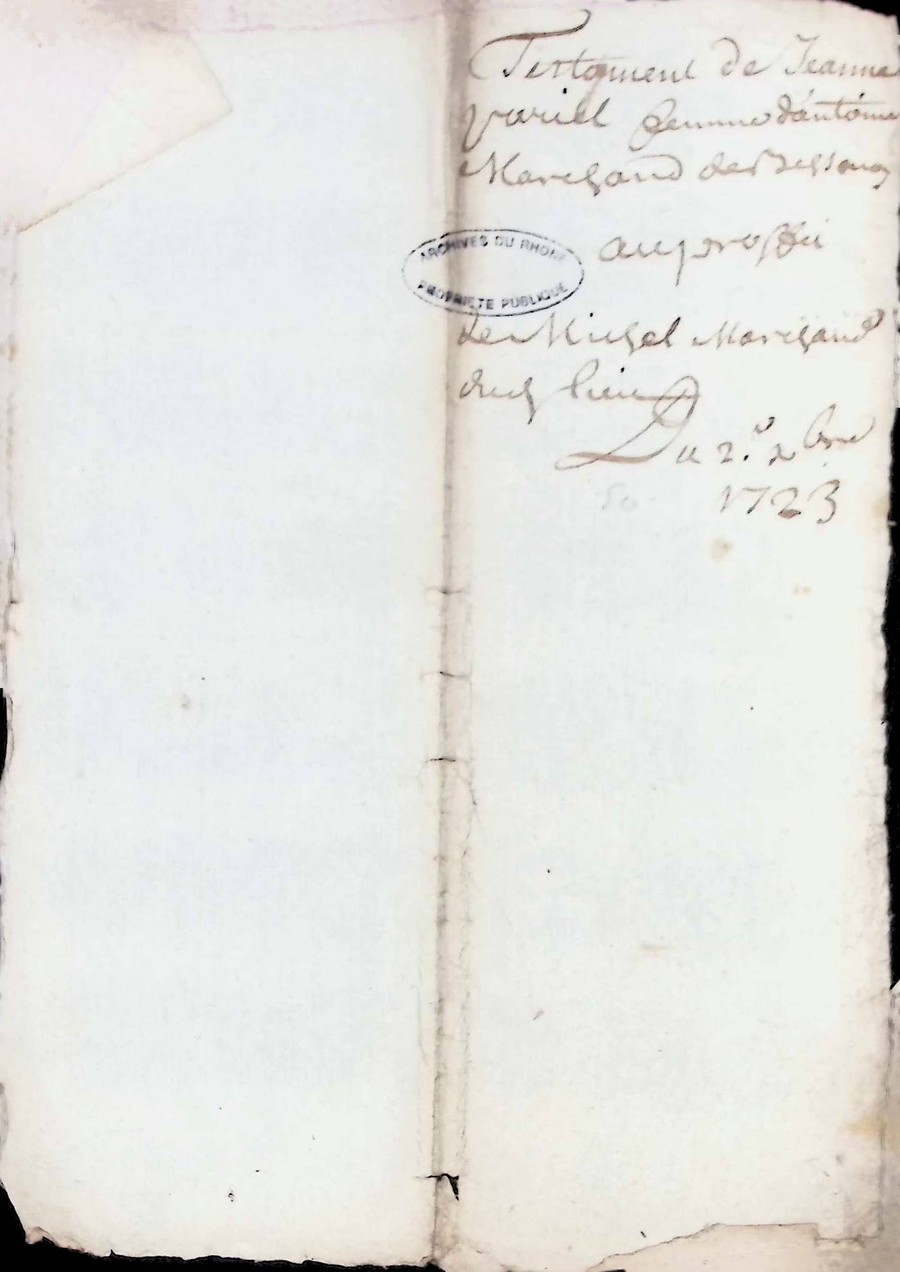 Testament de Jeanne
variel femme d'antoine
Marchand de
au proffit
ARCHIVES DU RHONE
PROPRIETE PUBLIQUE
de Michel Marchand
dud lieu
Du 2e xbre
1723